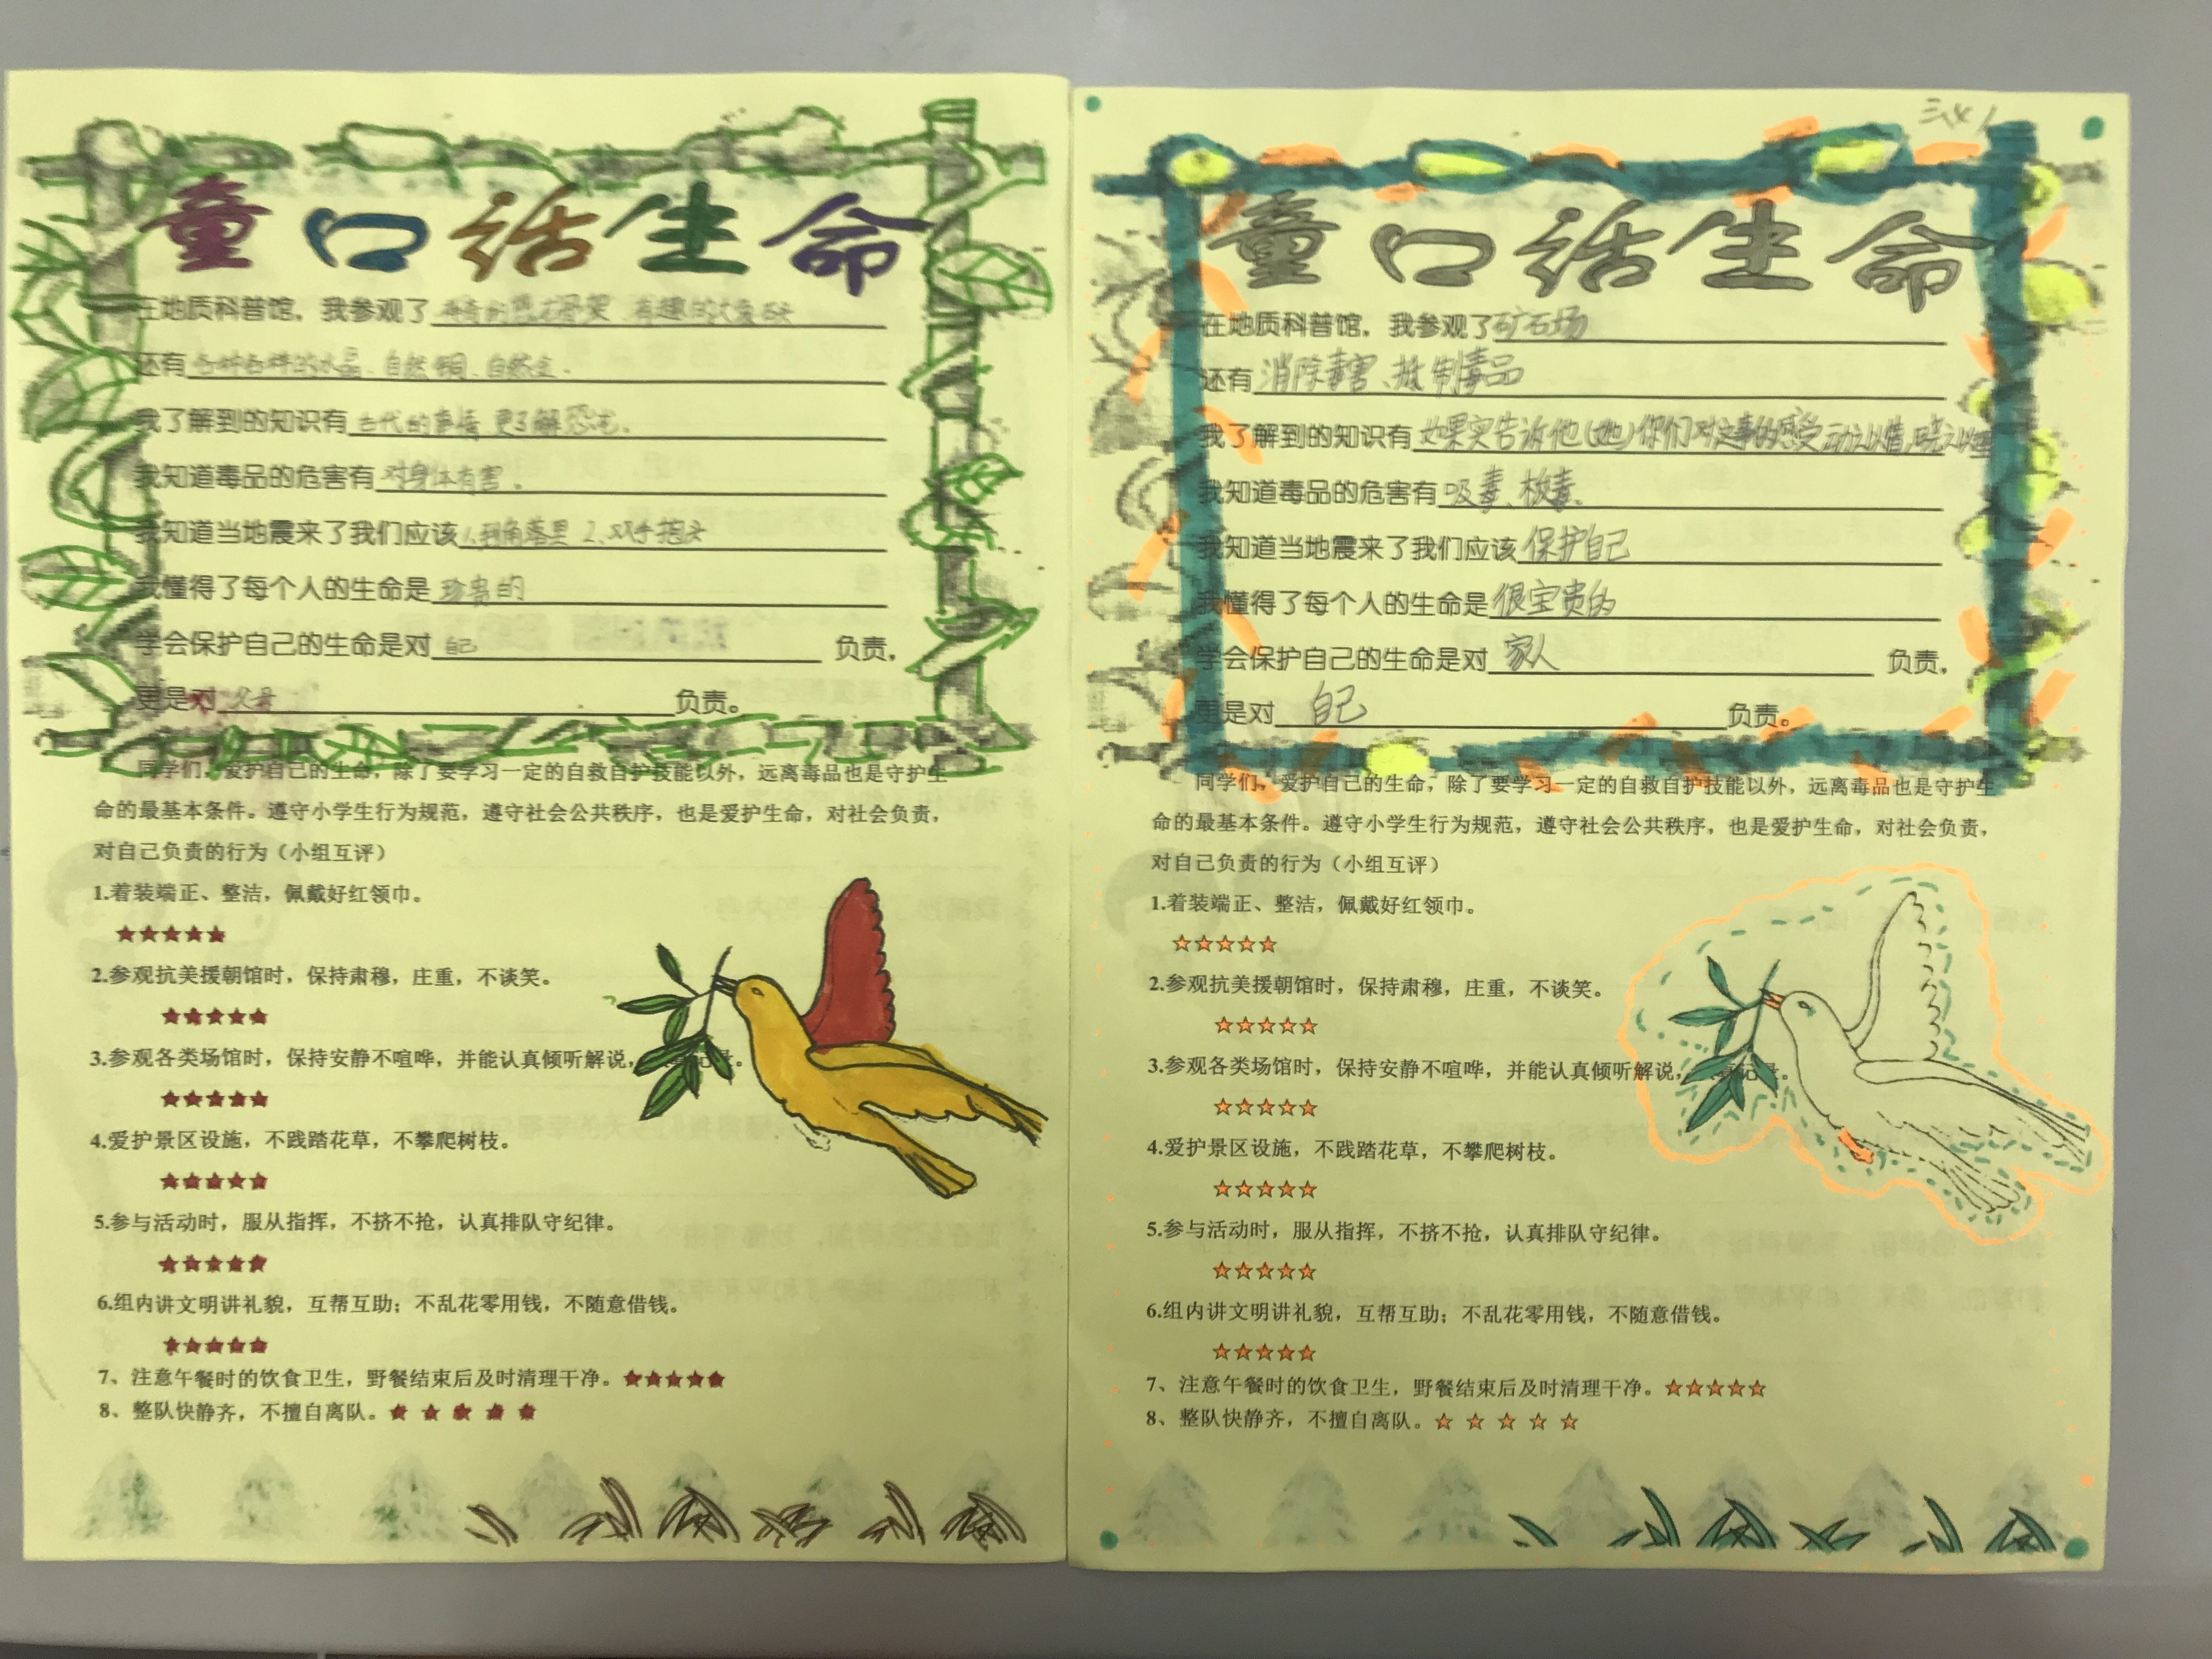 童口话生命
在地质科普馆，我参观了神奇的恐龙骨架、有趣的大象
还有各种各样的水晶、自然铜、自然金。
我了解到的知识有古代的事情 更了解恐龙。
我知道毒品的危害有对身体有害。
我知道当地震来了我们应该1、到角落里 2、双手抱头
我懂得了每个人的生命是珍贵的
学会保护自己的生命是对自己负责，
更是对父母负责。
同学们，爱护自己的生命，除了要学习一定的自救自护技能以外，远离毒品也是守护生
命的最基本条件。遵守小学生行为规范，遵守社会公共秩序，也是爱护生命，对社会负责，
对自己负责的行为（小组互评）
1.着装端正、整洁，佩戴好红领巾。
★★★★★
2.参观抗美援朝馆时，保持肃穆，庄重，不谈笑。
★★★★★
3.参观各类场馆时，保持安静不喧哗，并能认真倾听解说，记录。
★★★★★
4.爱护景区设施，不践踏花草，不攀爬树枝。
★★★★★
5.参与活动时，服从指挥，不挤不抢，认真排队守纪律。
★★★★★
6.组内讲文明讲礼貌，互帮互助；不乱花零用钱，不随意借钱。
★★★★★
7、注意午餐时的饮食卫生，野餐结束后及时清理干净。★★★★★
8、整队快静齐，不擅自离队。★ ★ ★ ★ ★
童口话生命
在地质科普馆，我参观了矿石场
还有消除毒害、抵制毒品
我了解到的知识有如果实告诉他（她）你们对这事的感受动之以情，晓之以理
我知道毒品的危害有吸毒、
我知道当地震来了我们应该保护自己
我懂得了每个人的生命是很宝贵的
学会保护自己的生命是对家人负责，
更是对自己负责。
同学们，爱护自己的生命，除了要学习一定的自救自护技能以外，远离毒品也是守护生
命的最基本条件。遵守小学生行为规范，遵守社会公共秩序，也是爱护生命，对社会负责，
对自己负责的行为（小组互评）
1.着装端正、整洁，佩戴好红领巾。
☆☆☆☆☆
2.参观抗美援朝馆时，保持肃穆，庄重，不谈笑。
☆☆☆☆☆
3.参观各类场馆时，保持安静不喧哗，并能认真倾听解说，记录。
☆☆☆☆☆
4.爱护景区设施，不践踏花草，不攀爬树枝。
☆☆☆☆☆
5.参与活动时，服从指挥，不挤不抢，认真排队守纪律。
☆☆☆☆☆
6.组内讲文明讲礼貌，互帮互助；不乱花零用钱，不随意借钱。
☆☆☆☆☆
7、注意午餐时的饮食卫生，野餐结束后及时清理干净。☆☆☆☆☆
8、整队快静齐，不擅自离队。☆ ☆ ☆ ☆ ☆